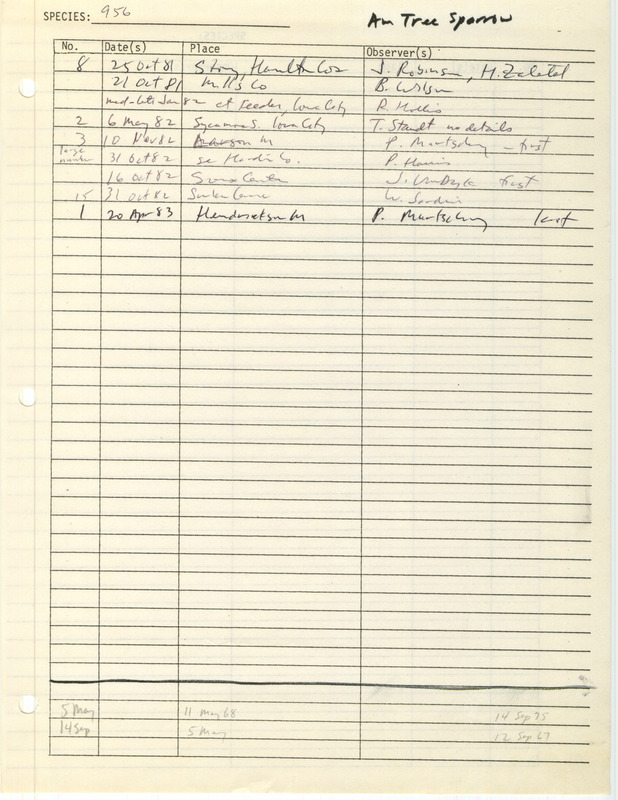 SPECIES: 956
Am Tree Sparrow
No. Date(s) Place Observer(s)
8 25 Oct 81 Story, Hamilton Cos J. Robinson, H. Zaletel
21 Oct 81 Mills Co B. Wilson
mid-late Jan 82 at feeder, Iowa City R. Hollis
2 6 May 82 Sycamore S. Iowa City T. Staudt no details
3 10 Nov 82 M P. Martsching – first
large number 31 Oct 82 se Hardin Co. P.
16 Oct 82 Sioux Center J. VanDyk first
15 31 Oct 82 W.
1 20 Apr 83 M P. Martsching last
5 May 11 May 68 14 Sep 75
14 Sep 5 May 12 Sep 67